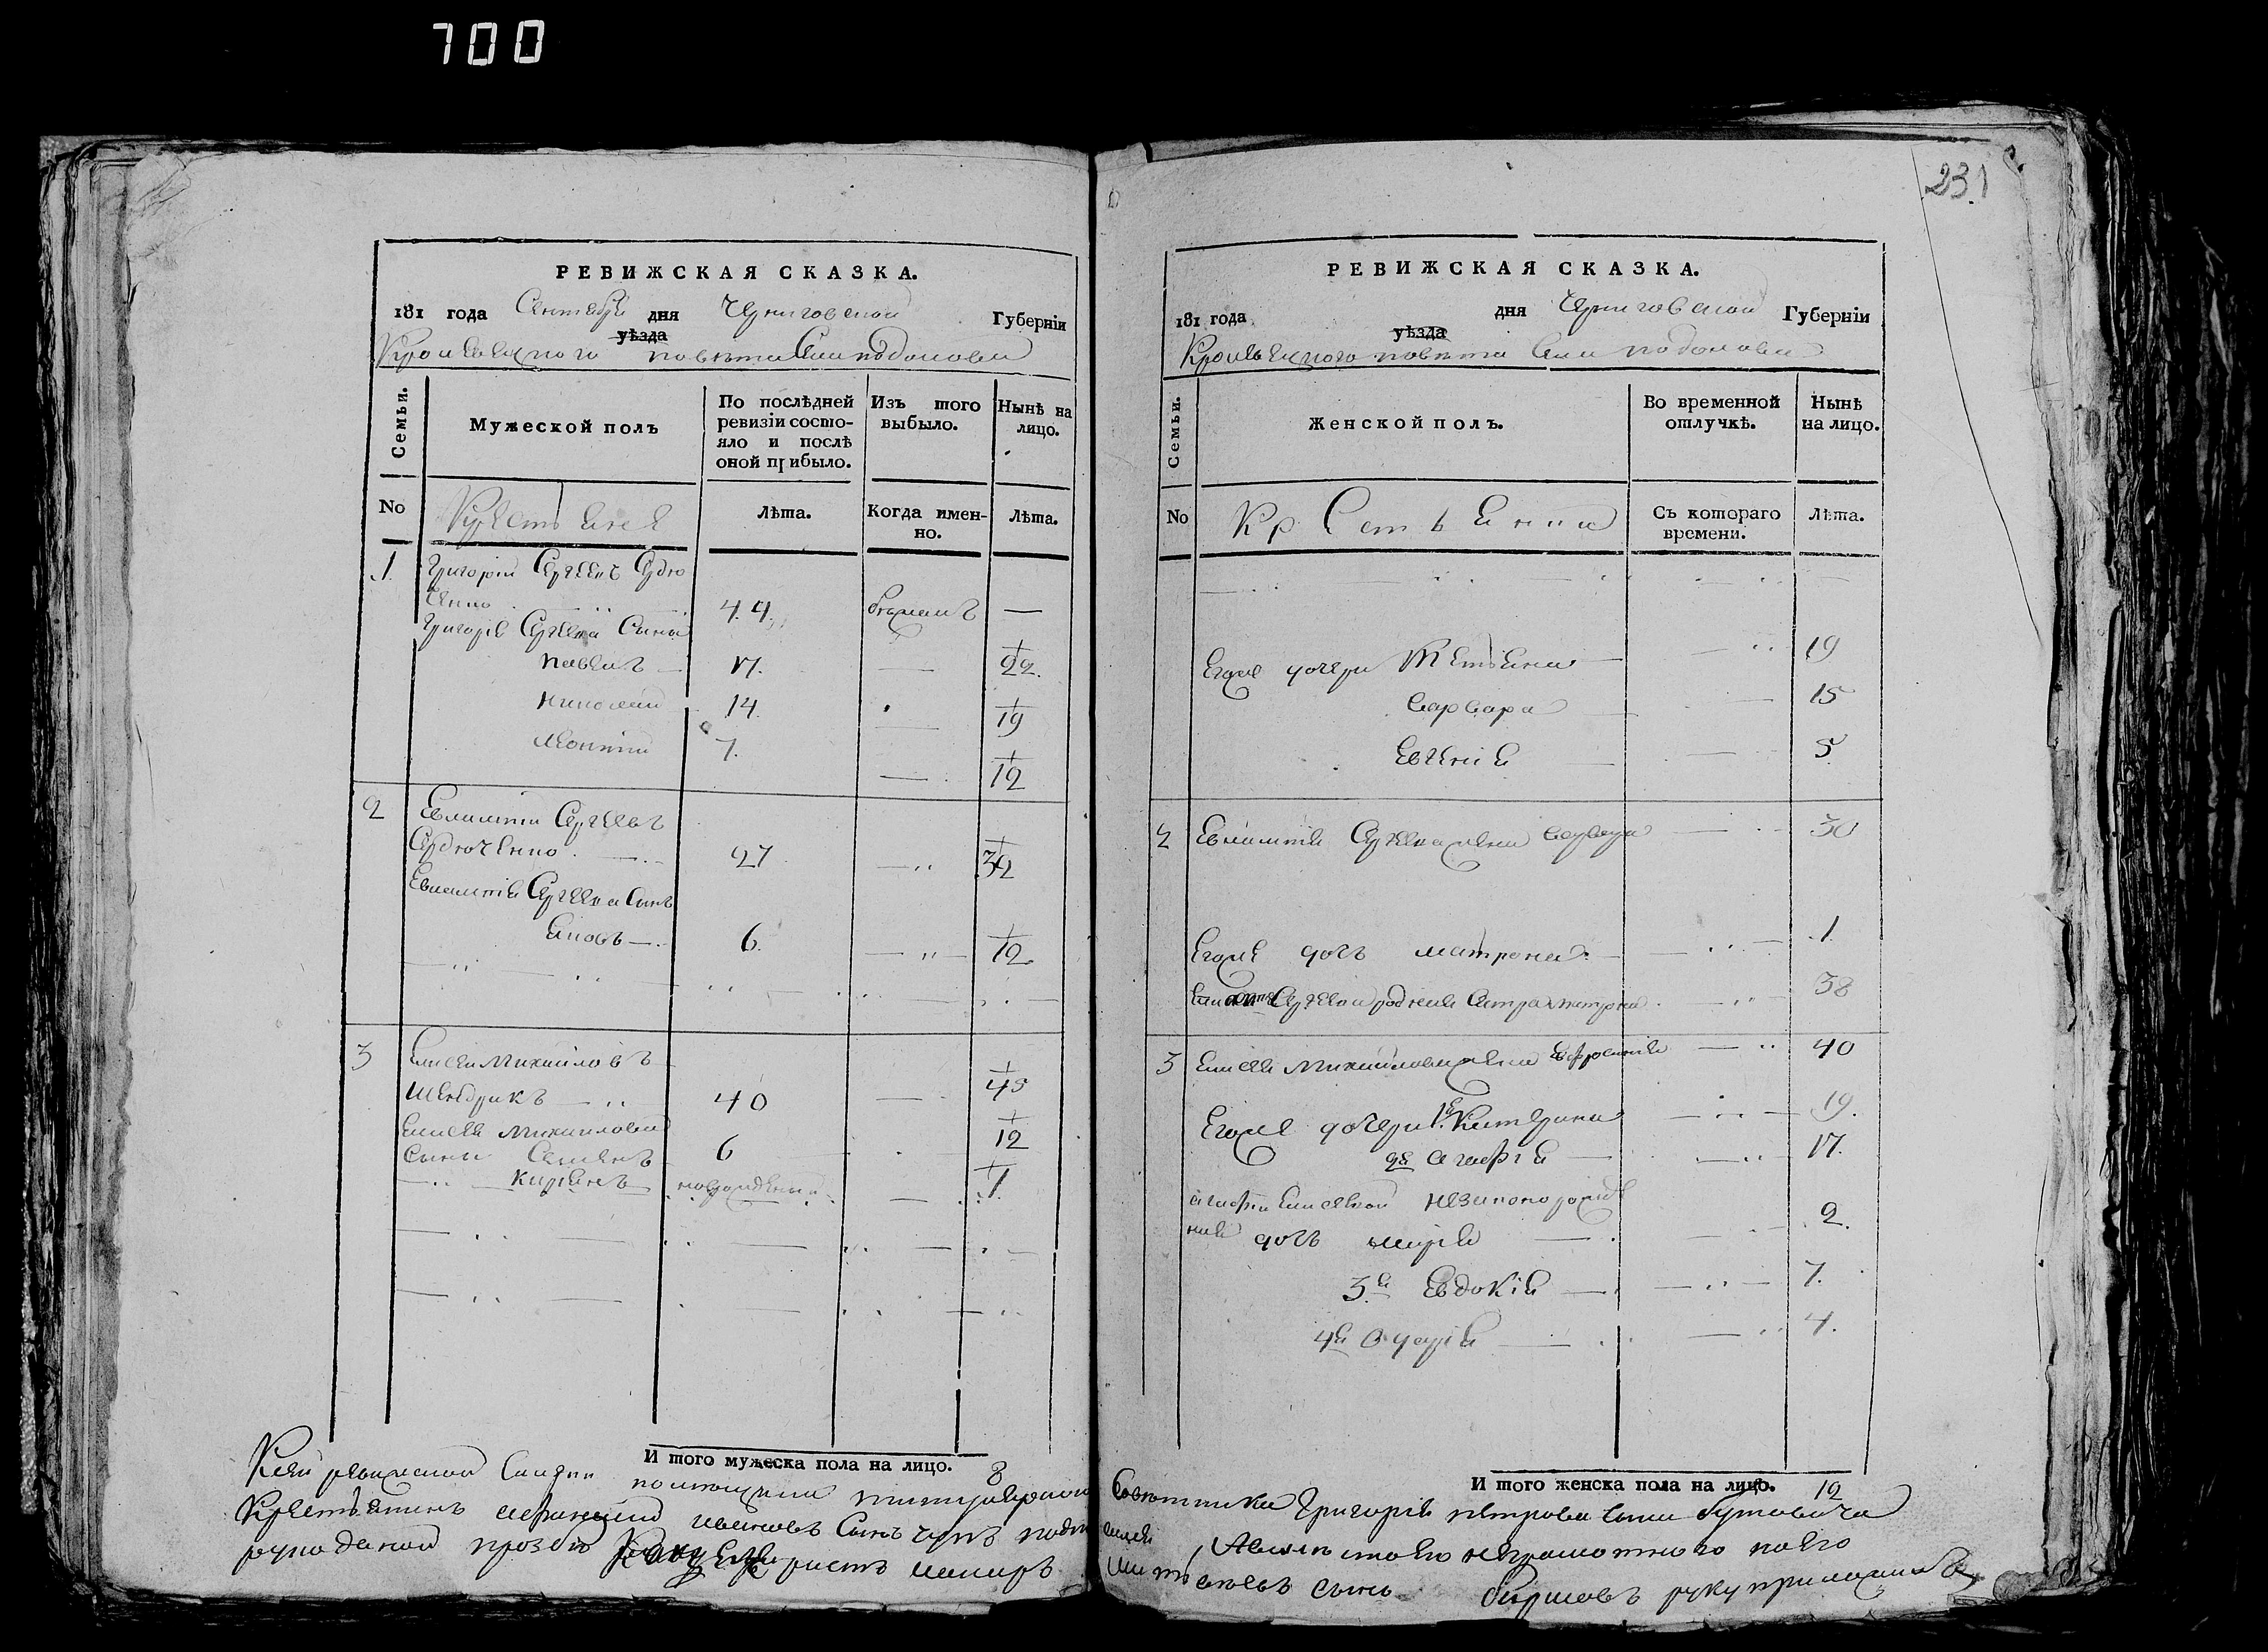 700
231
РЕВИЖСКАЯ СКАЗКА.
181 года Сентября дня Черниговской Губерніи
уѣзда
Кролевецкого повѣта Села подолова
Семьи.
Мужеской полъ
По послѣдней ревизіи состо-
яло и послѣ
оной прибыло.
Изъ того
выбыло.
Нынѣ на
лицо.
No
Крестьяне
Лѣта.
Когда имен-
но.
Лѣта.
1. Григорій Сергѣевъ Сердю
ченко 44. —
Григорія Сергѣева Сыны
Павелъ — 17. — 22.
Николай 14. — 19
Леонтій 7. — 12
2 Евлампій Сергѣевъ
Сердюченко 27 — 32
Евлампія Сергѣева Сынъ
Яковъ — 6. — 12.
3 Елисей Михайловъ
Шендрикъ — 40 — 45
Елисея Михайлова
сыны Семенъ 6 12
новрожденный — 1.
И того мужеска пола на лицо. 8
РЕВИЖСКАЯ СКАЗКА.
181 года дня Черниговской Губерніи
уѣзда
Кролевецкого повѣта Села подолова
Семьи.
Женской полъ.
Во временной
отлучкѣ.
Нынѣ
на лицо.
No
Крестьянки
Съ котораго
времени.
Лѣта.
Егоже дочери Татьяна — 19
варвара — 15
Евгенія — 5
2 Евлампія Сергѣева жена варвара — 30
Егоже дочь матрона — 1.
Сергѣева родная Сестра матрона — 38
3 Елисея Михайлова жена Ефросинія — 40
Егоже дочери 1я Катерина — 19.
2я агафія — 17.
агафіи Елисѣевой незаконорожде
ная дочь марія — 2.
3я Евдокія — 7.
4я — 4.
И того женска пола на лицо. 12
Ксей ревижской Сказки титулярного Совѣтника Григорія петрова сына бутовича
Крестьянинъ ивановъ Сынъ неграмотного по его
рукоданой прозбѣ Канцеляристъ сынъ руку приложилъ